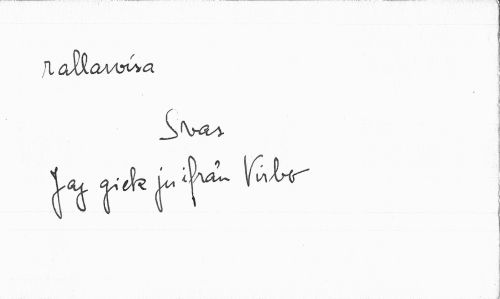 rallarvisa
Svas
Jag gick ju ifrån Virbo